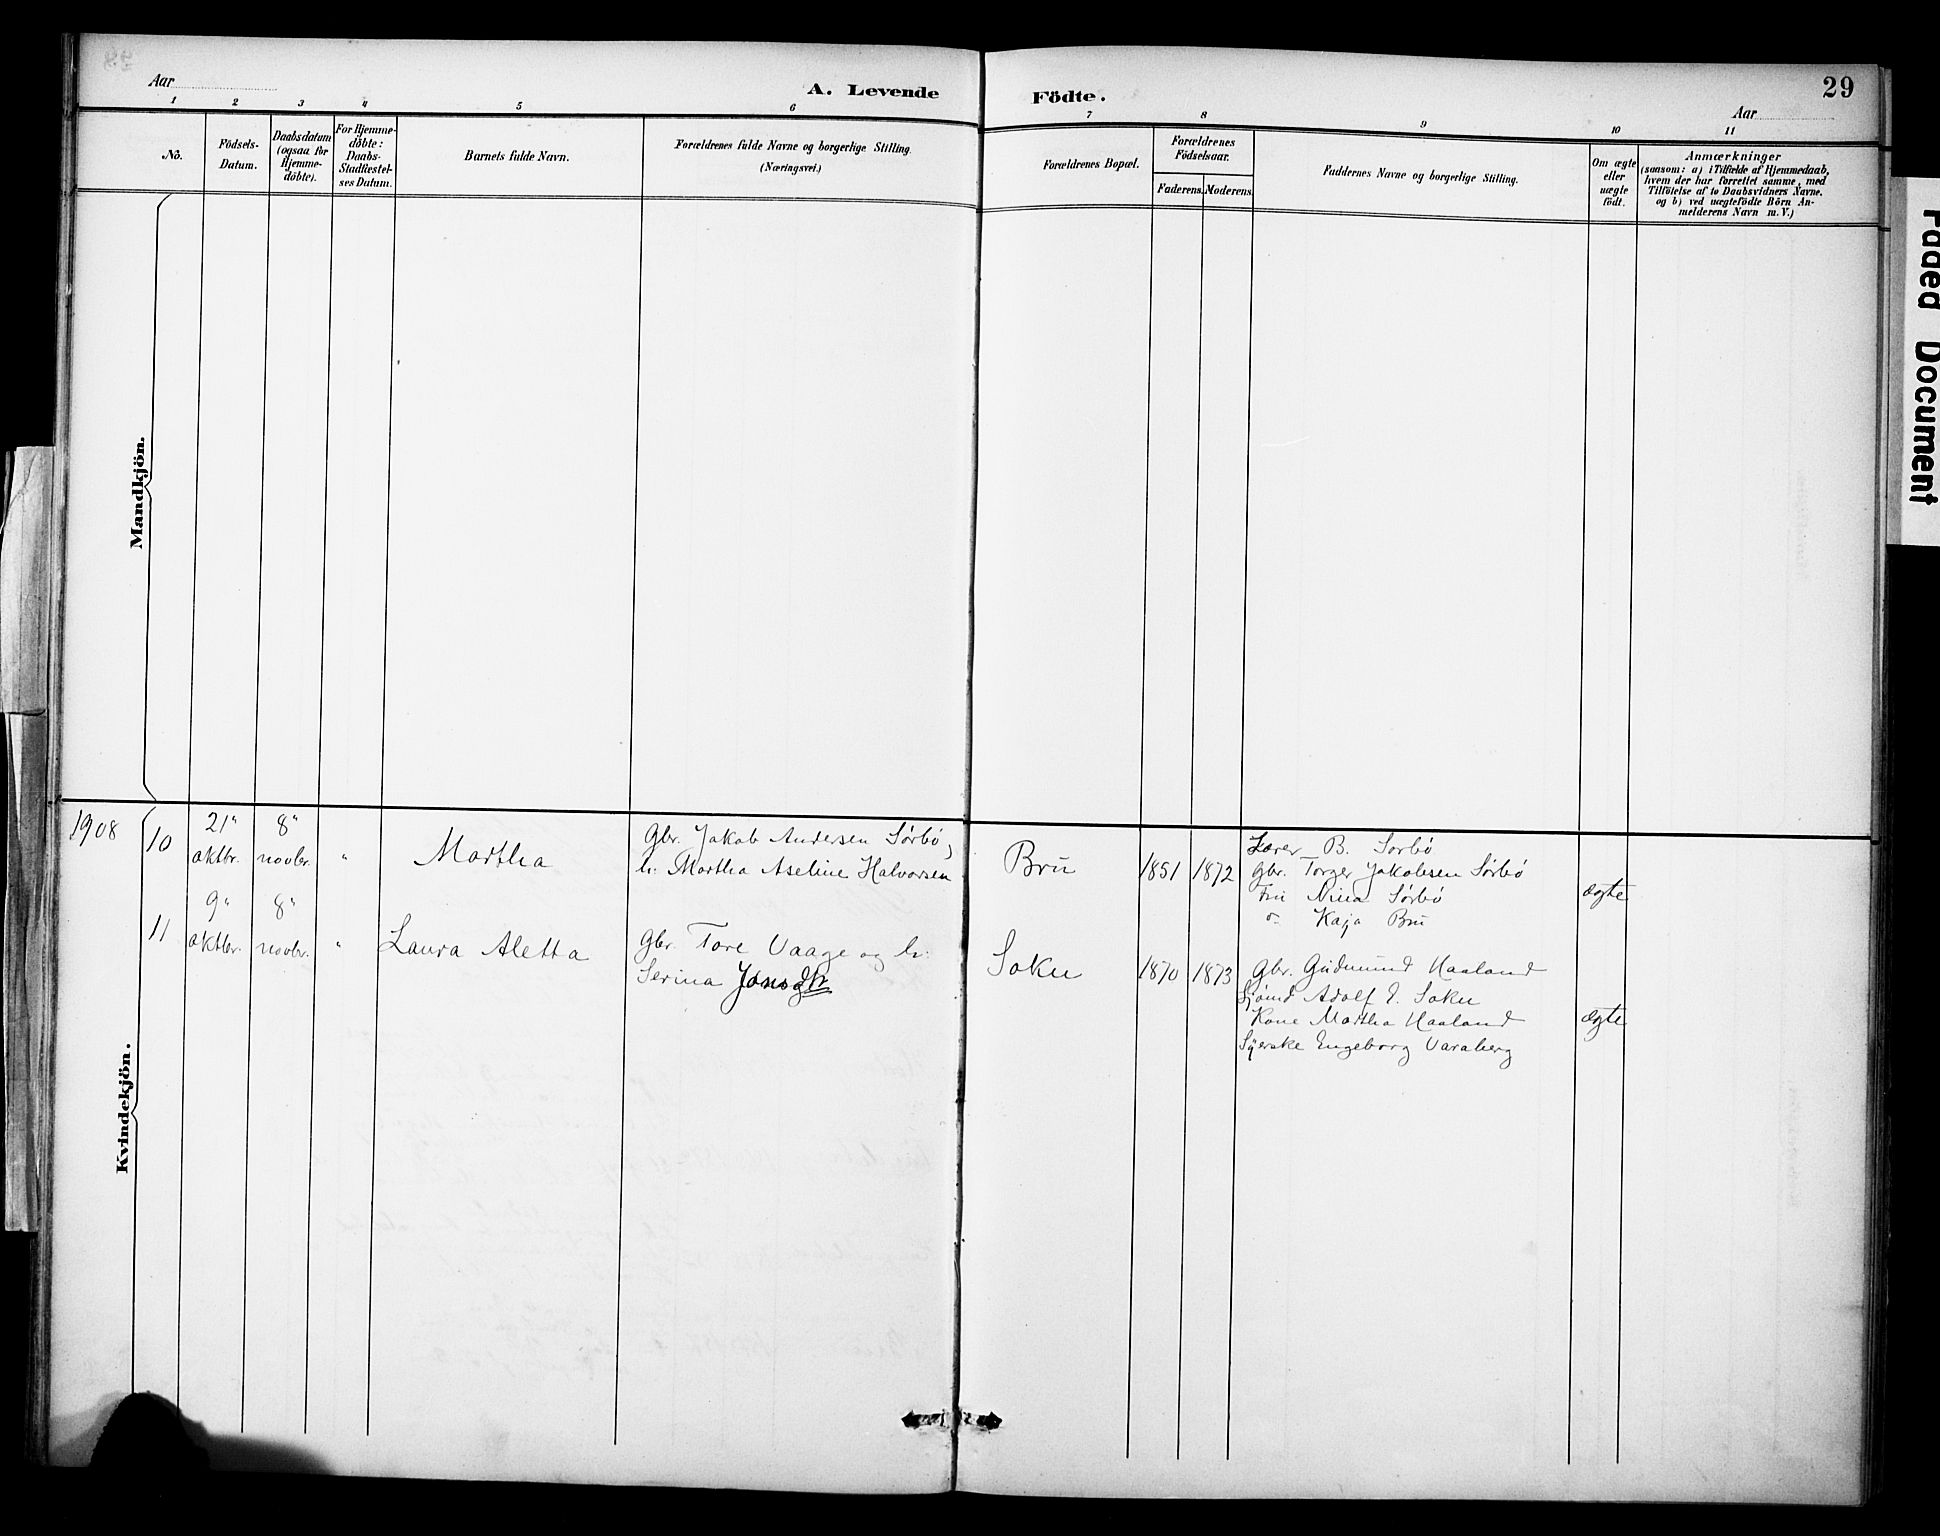 29
Aar
A. Levende Födte.
Aar
1 2 3 4 5 6 7 8 9 10 11
No.
Födsels-
Datum.
Daabsdatum
(ogsaa for
Hjemme-
döbte).
For Hjemme-
döbte:
Daabs-
Stadfæstel-
ses Datum.
Barnets fulde Navn.
Forældrenes fulde Navne og borgerlige Stilling.
(Næringsvei.)
Forældrenes Bopæl.
Forældrenes
Födselsaar.
Faderens. Moderens.
Faddernes Navne og borgerlige Stilling.
Om ægte
eller
uægte
födt.
Anmærkninger
(saasom: a) i Tilfælde af Hjemmedaab,
hvem der har forrettet samme, med
Tilföielse af to Daabsvidners Navne.
og b) ved uægtefödte Börn An-
melderens Navn m.V.)
Faded Document
Mandkjön.
Kvindekjön.
1908
10
21"
oktbr.
8"
novbr.
"
Martha
Gbr. Jakob Andersen Sørbø,
h: Martha Aseline Halvorsen
Bru
1851
1872
Lærer B. Sørbø
Gbr. Torger Jakobsen Sørbø
Fru Nina Sørbø
o. Kaja Bru
ægte
11
9"
oktbr.
8"
novbr.
"
Laura Aletta
Gbr. Tore Vaage og h:
Serina Jonsdtr
Soku
1870
1873
Gbr. Gudmund Haaland
Sjømd Adolf E. Soku
Kone Martha Haaland
Syerske Engeborg Varaberg
ægte